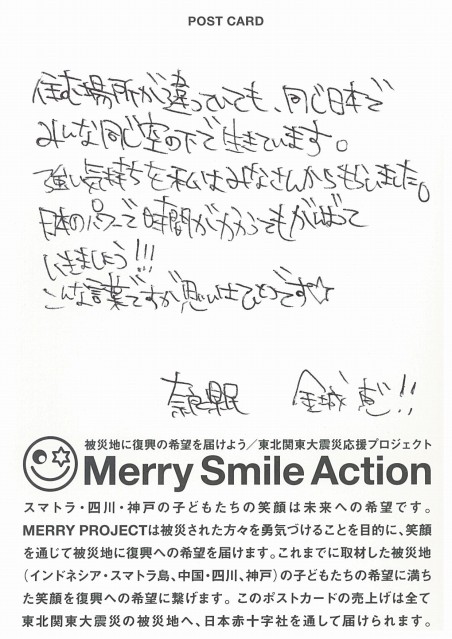 POST CARD
住む場所が違っていても、同じ日本で
みんな同じ空の下で生きています。
強い気持ちを私はみなさんからもらいました。
日本のパワーで時間がかかってもがんばって
いきましょう!!!
こんな言葉ですが思いはひとつです☆
奈良県民 金城 恵!!
被災地に復興の希望を届けよう／東北関東大震災応援プロジェクト
Merry Smile Action
スマトラ・四川・神戸の子どもたちの笑顔は未来への希望です。
MERRY PROJECTは被災された方々を勇気づけることを目的に、笑顔
を通じて被災地に復興への希望を届けます。これまでに取材した被災地
（インドネシア・スマトラ島、中国・四川、神戸）の子どもたちの希望に満ち
た笑顔を復興への希望に繋げます。このポストカードの売上げは全て
東北関東大震災の被災地へ、日本赤十字社を通して届けられます。